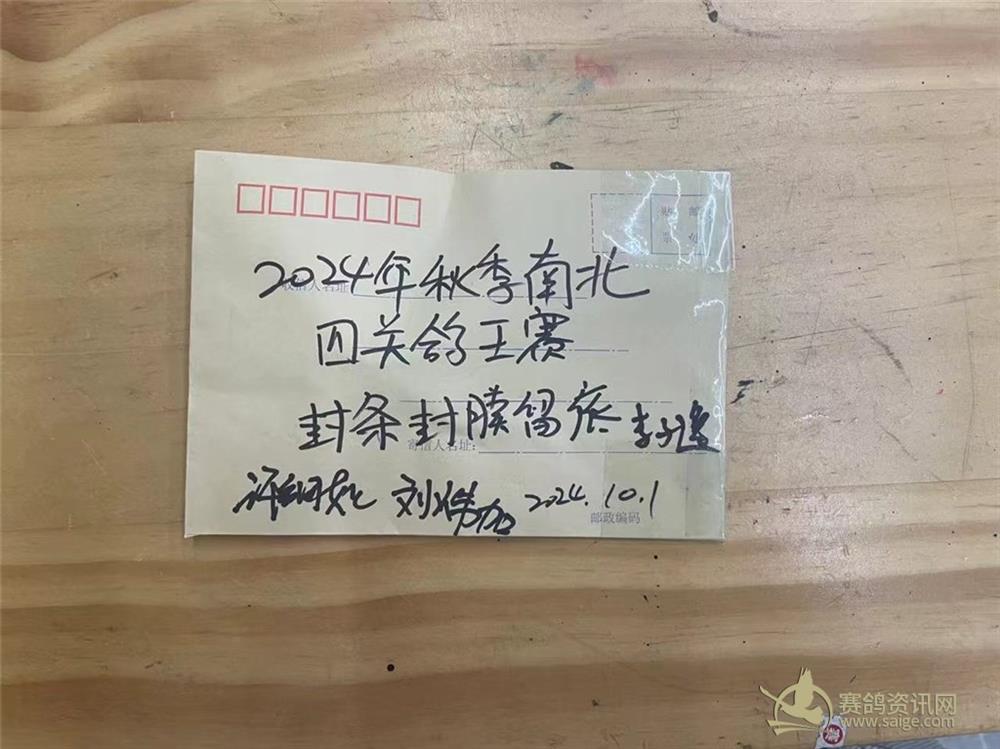 贴邮
票处
2024年秋季南北
收信人名址:
四关鸽王赛
封条封膜留底
寄信人名址:
2024.10.1
邮政编码
赛鸽资讯网
www.saige.com